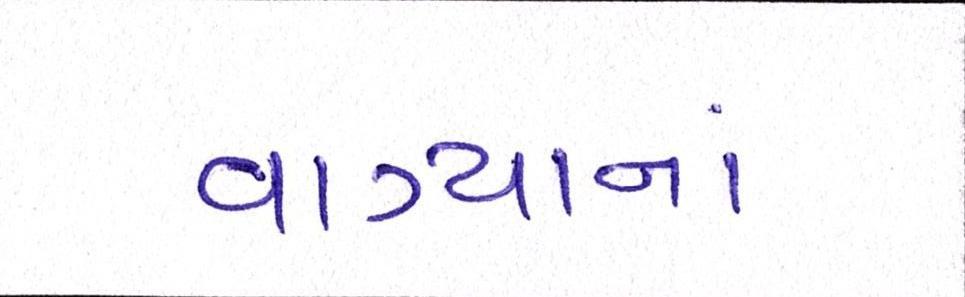 વાગ્યાનાં